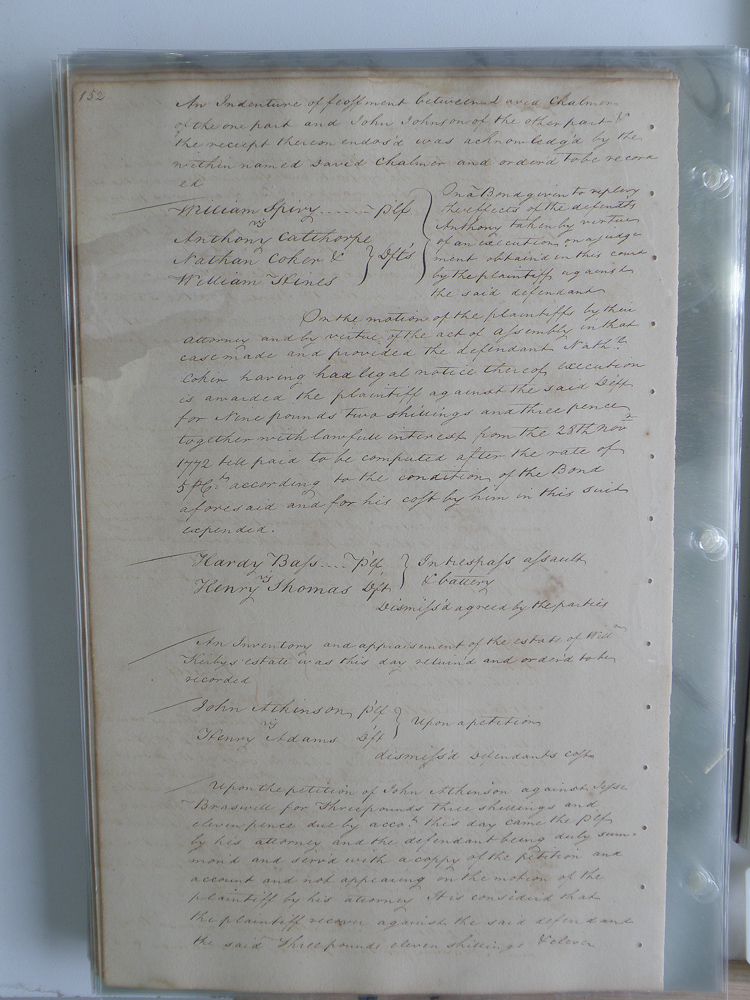 152
An Indenture of feoffment between David Chalmers
of the one part and John Johnson of the other part &
the receipt thereon endors'd was acknowledg'd by the
within named David Chalmer and order'd to be recora
ed
William Spivy ...... Plf
vs
Anthony Calthorpe
Nathan Coker &
William Hines
Dft's
On a Bond given to replevy
the effects of the defend'ts
Anthony taken by virtue
of an execution on a judge
ment obtain'd in this court
by the plaintiff against
the said defendant
On the motion of the plaintiffs by their
attorney and by virtue of the act of assembly in that
case made and provided the defendant Nath.n
Coker having had legal notice thereof execution
is awarded the plaintiff against the said Dft
for Nine pounds two shillings and three pence
together with lawfull interest from the 28th Nov
1772 till paid to be computed after the rate of
5 P C.t according to the condition of the Bond
aforesaid and for his cost by him in this suit
expended.
Hardy Bass .... Plf
vs
Henry Thomas Dft
In trespass assault
& battery
Dismiss'd agreed by the parties
An Inventory and appraisement of the estate of Will.m
Kirbys estate was this day return'd and order'd to be
recorded
John Atkinson Plf
vs
Henry Adams Dft
Upon a petition
dismiss'd Defendants cost
Upon the petition of John Atkinson against Jesse
Braswell for Three pounds three shillings and
eleven pence due by acco.t this day came the Plf
by his attorney and the defendant being duly sum-
mon'd and serv'd with a coppy of the petition and
account and not appearing on the motion of the
plaintiff by his attorney It is consider'd that
the plaintiff recover against the said defendant
the said Three pounds eleven shillings & eleven